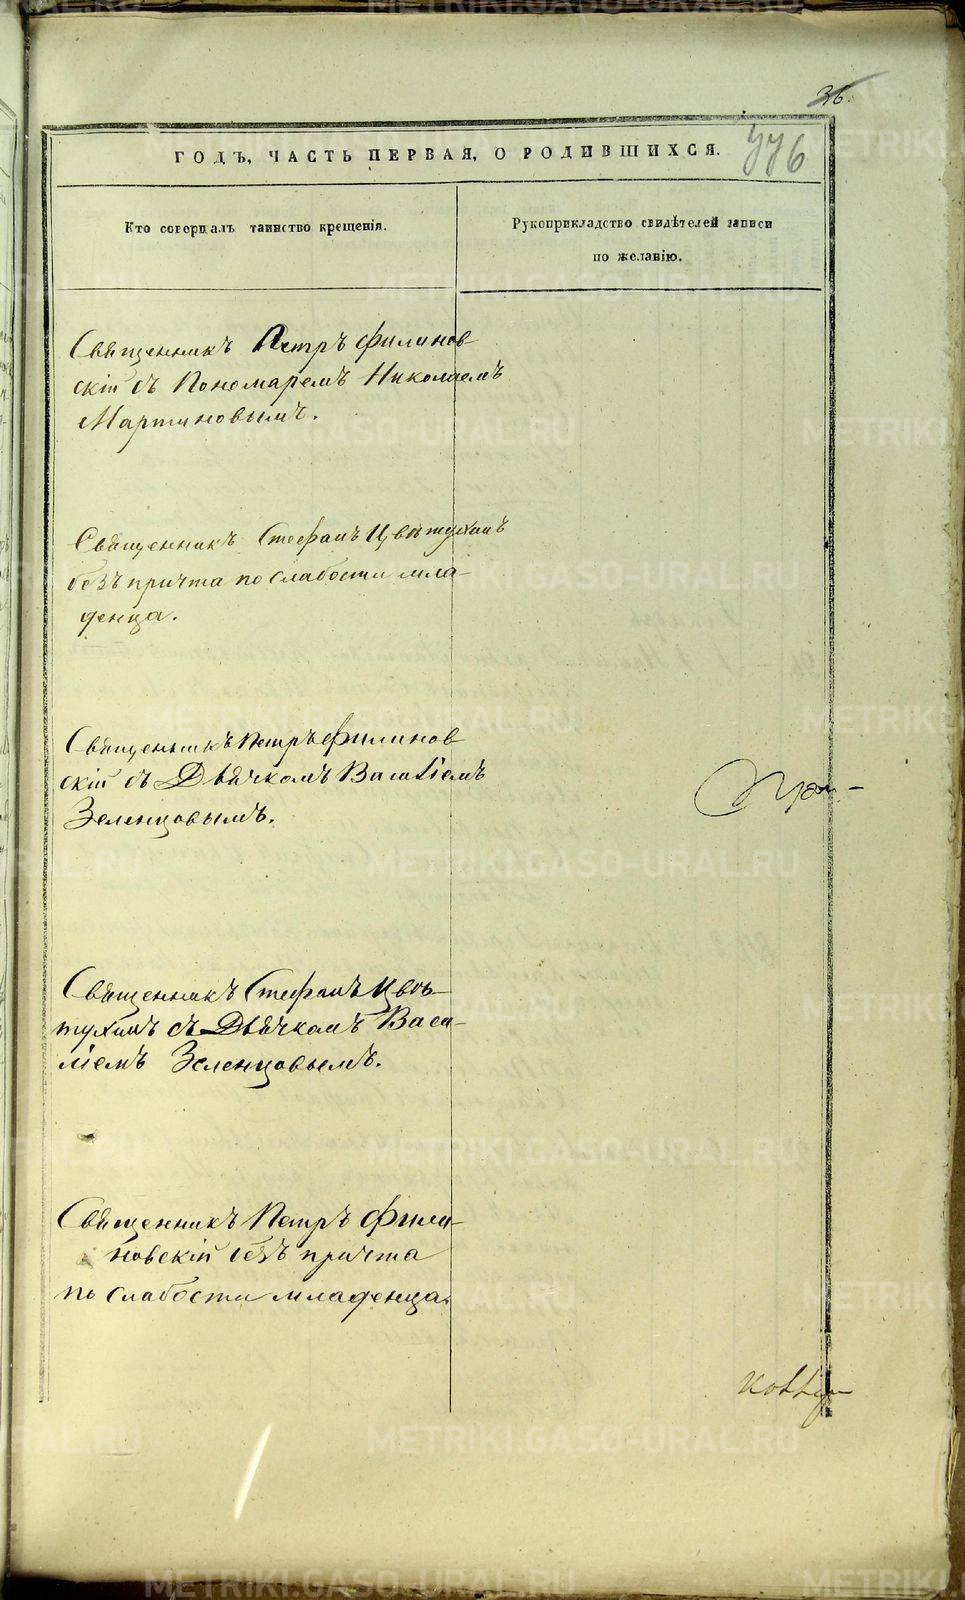 36.
776
ГОДЪ, ЧАСТЬ ПЕРВАЯ, О РОДИВШИХСЯ.
Кто совершалъ таинство крещенія.
Рукоприкладство свидѣтелей записи
по желанію.
Священникъ Петръ Филинов
скій съ Пономаремъ Николаемъ
Мартиновымъ.
Священникъ Стефанъ Цвѣтухинъ
безъ причта по слабости мла-
денца.
Священникъ Петръ Филинов
скій съ Дьячкомъ Василіемъ
Зеленцовымъ.
Священникъ Стефанъ Цвѣ-
тухинъ съ Дьячкомъ Васи-
ліемъ Зеленцовымъ.
Священникъ Петръ Фили-
новскій безъ причта
по слабости младенца.
METRIKI.GASO-URAL.RU